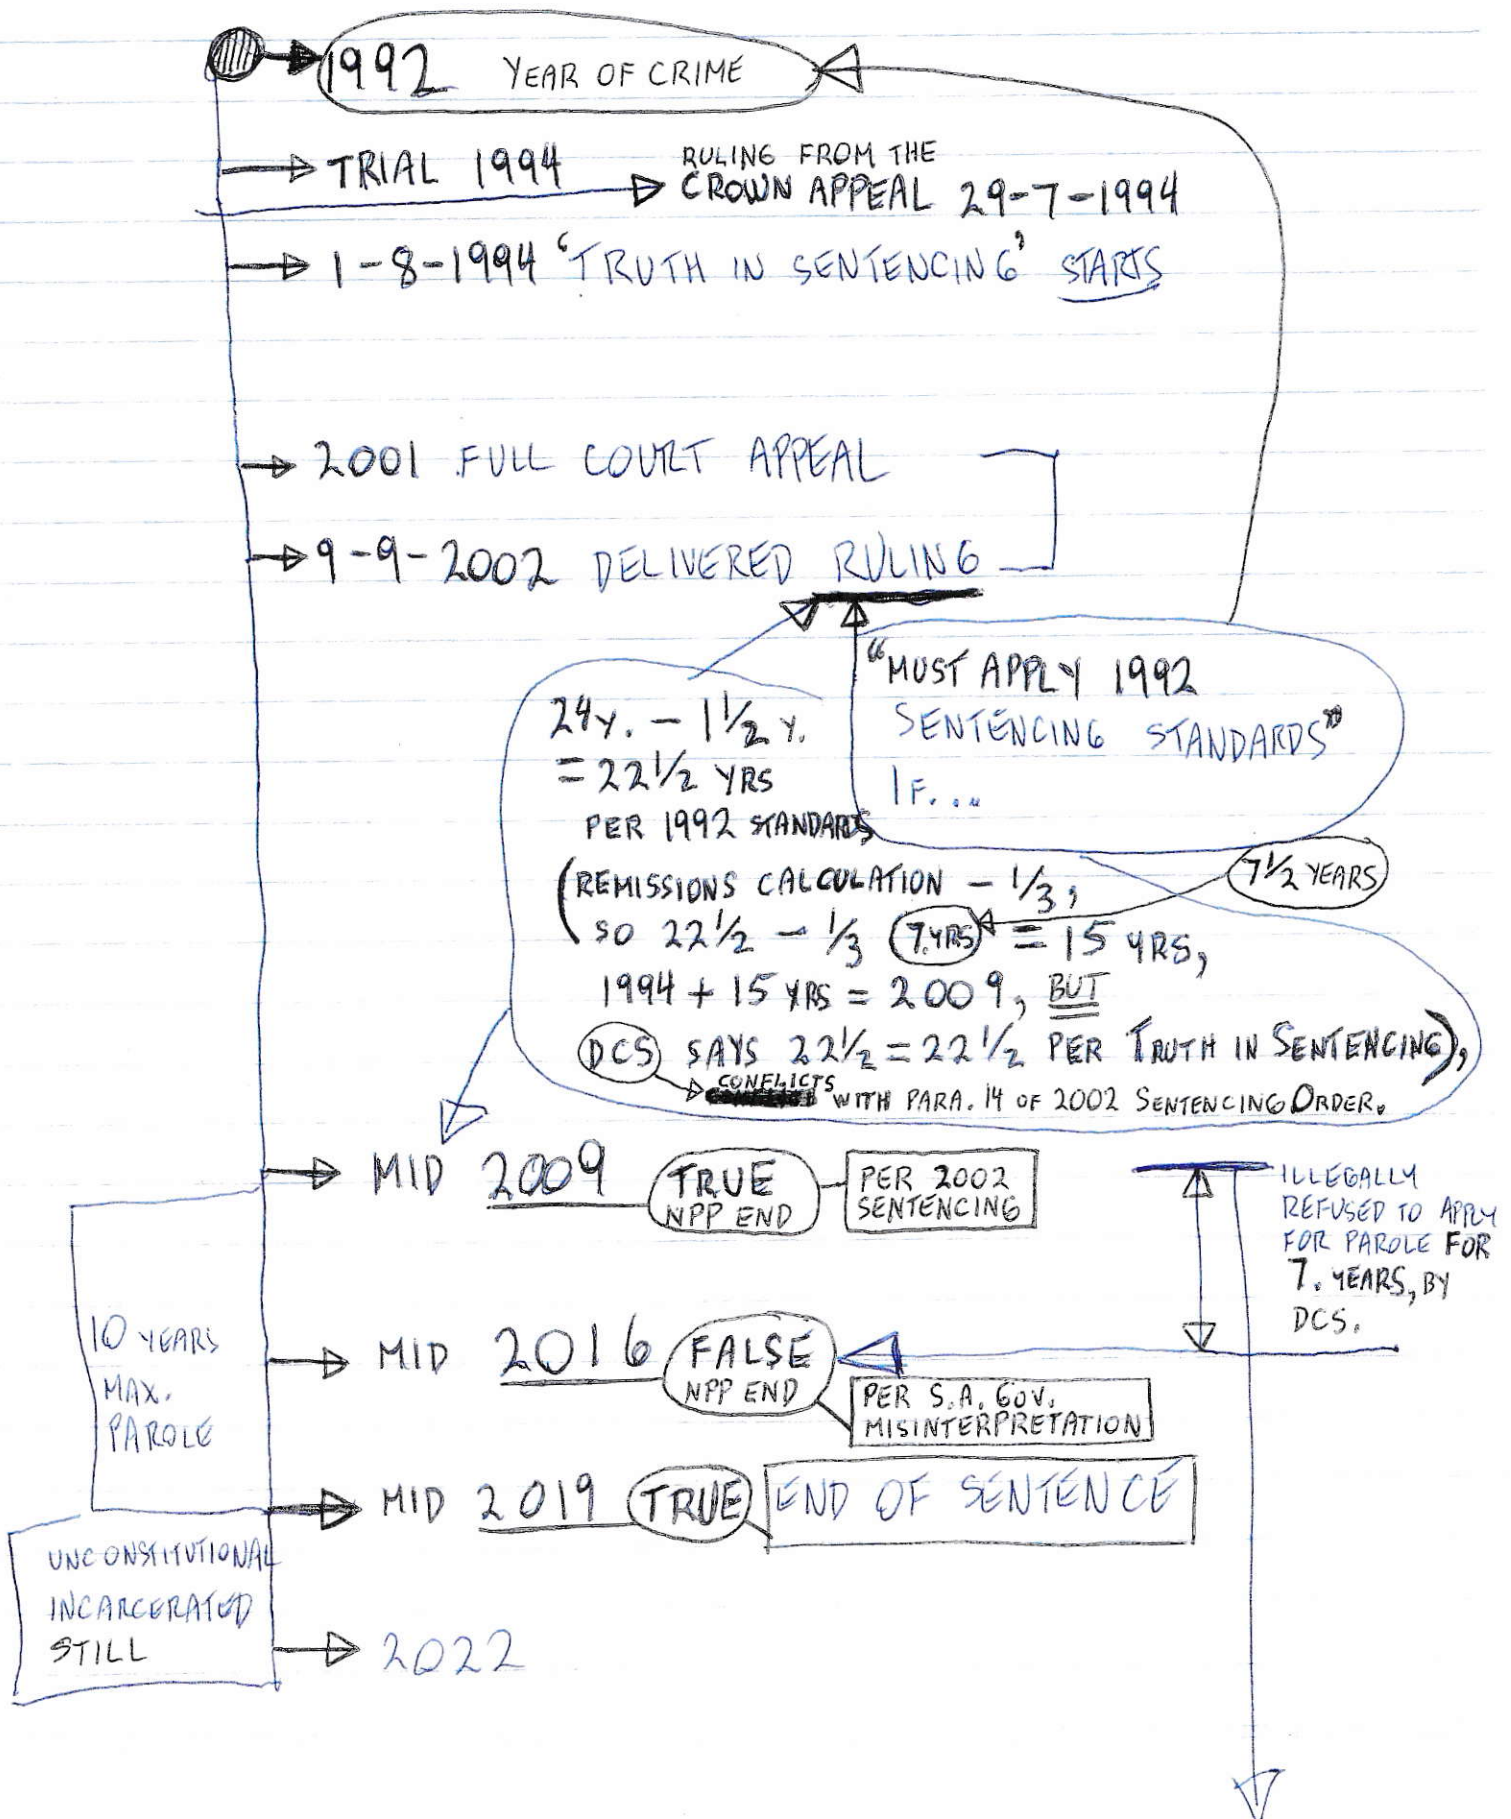 1992 YEAR OF CRIME
TRIAL 1994
RULING FROM THE
CROWN APPEAL 29-7-1994
1-8-1994 'TRUTH IN SENTENCING' STARTS
2001 FULL COURT APPEAL
9-9-2002 DELIVERED RULING
"MUST APPLY 1992
SENTENCING STANDARDS"
IF...
24Y. - 1 1/2 Y.
= 22 1/2 YRS
PER 1992 STANDARDS
(REMISSIONS CALCULATION - 1/3,
7 1/2 YEARS
SO 22 1/2 - 1/3 (7.YRS) = 15 YRS,
1994 + 15 YRS = 2009, BUT
DCS SAYS 22 1/2 = 22 1/2 PER TRUTH IN SENTENCING),
CONFLICTS WITH PARA. 14 OF 2002 SENTENCING ORDER.
MID 2009 TRUE
NPP END
PER 2002
SENTENCING
ILLEGALLY
REFUSED TO APPLY
FOR PAROLE FOR
7. YEARS, BY
DCS.
10 YEARS
MAX.
PAROLE
MID 2016 FALSE
NPP END
PER S.A. GOV.
MISINTERPRETATION
MID 2019 TRUE END OF SENTENCE
UNCONSTITUTIONAL
INCARCERATED
STILL
2022